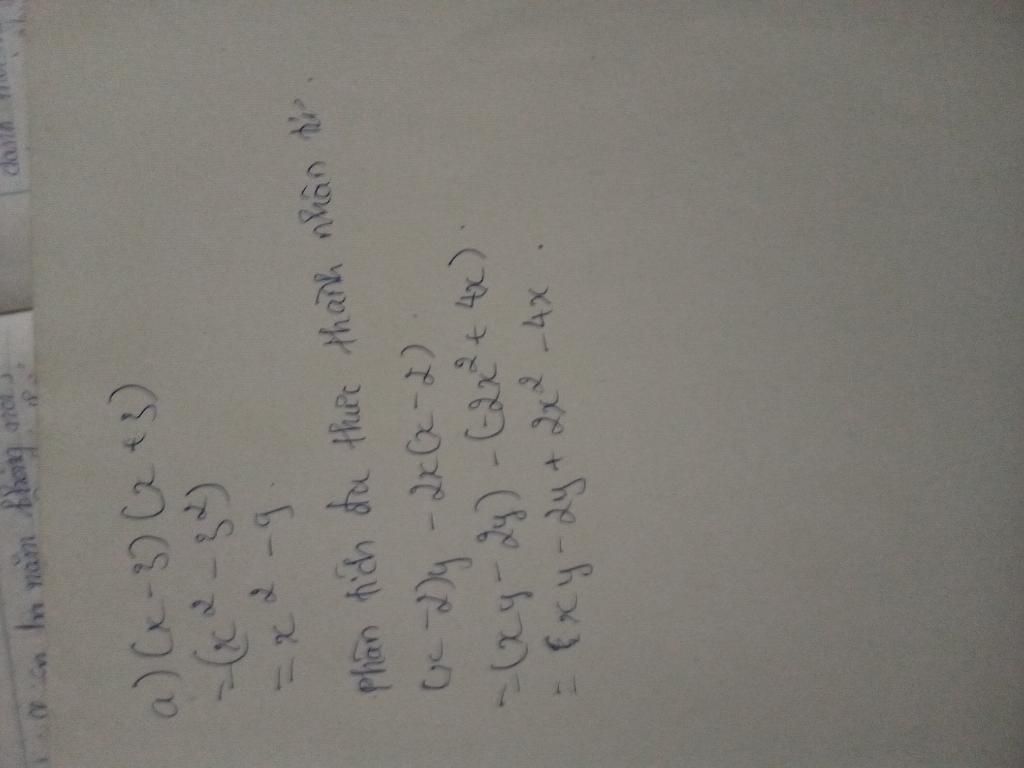 a) (x - 3) (x + 3)
= (x² - 3²)
= x² - 9.
Phân tích đa thức thành nhân tử.
(x - 2)y - 2x(x - 2)
= (xy - 2y) - (-2x² + 4x).
= xy - 2y + 2x² - 4x.